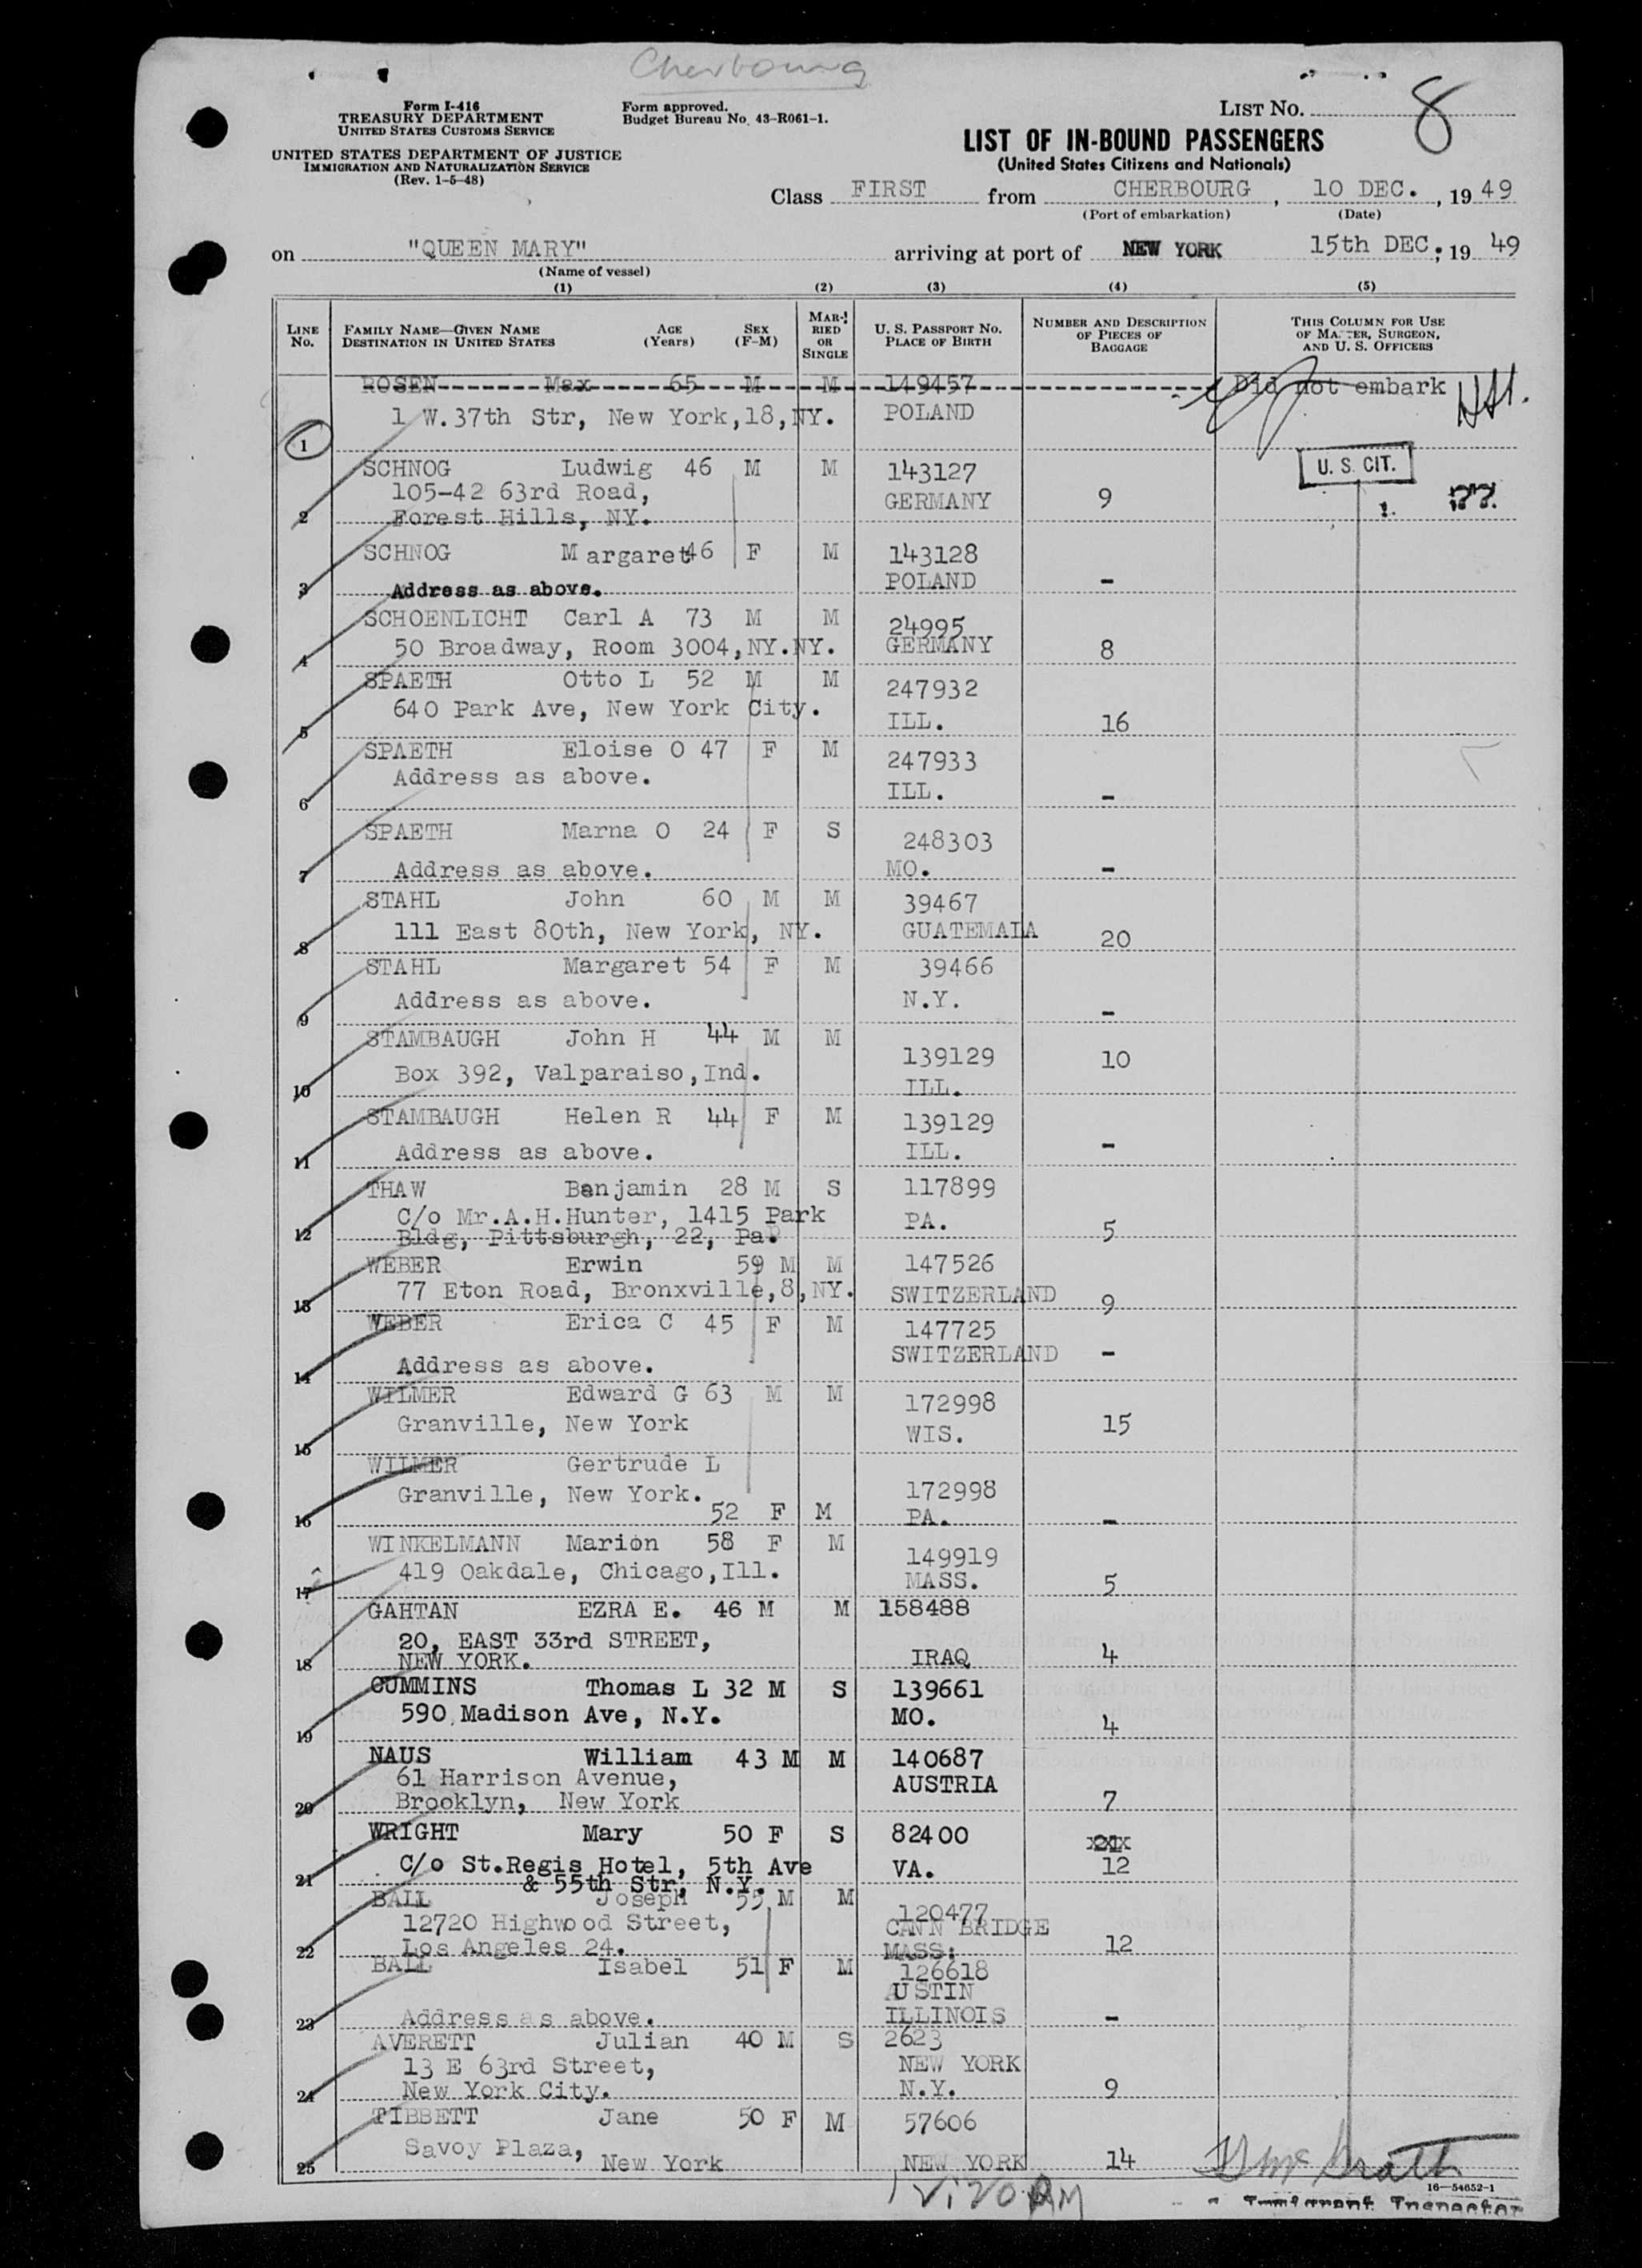 Cherbourg
Form I-416
TREASURY DEPARTMENT
UNITED STATES CUSTOMS SERVICE
UNITED STATES DEPARTMENT OF JUSTICE
IMMIGRATION AND NATURALIZATION SERVICE
(Rev. 1-5-48)
Form approved.
Budget Bureau No. 43-R061-1.
LIST No. 8
LIST OF IN-BOUND PASSENGERS
(United States Citizens and Nationals)
Class FIRST from CHERBOURG, 10 DEC., 19 49
(Port of embarkation) (Date)
on "QUEEN MARY" arriving at port of NEW YORK 15th DEC; 19 49
(Name of vessel)
(1) (2) (3) (4) (5)
LINE No. FAMILY NAME—GIVEN NAME DESTINATION IN UNITED STATES AGE (Years) SEX (F-M) MARRIED OR SINGLE U. S. PASSPORT No. PLACE OF BIRTH NUMBER AND DESCRIPTION OF PIECES OF BAGGAGE THIS COLUMN FOR USE OF MASTER, SURGEON, AND U. S. OFFICERS
ROSEN Max 65 M M 149457 Did not embark
1 W. 37th Str, New York,18,NY. POLAND
1
SCHNOG Ludwig 46 M M 143127 U. S. CIT.
105-42 63rd Road, GERMANY 9 ??
2 Forest Hills, NY.
SCHNOG Margaret 46 F M 143128
3 Address as above. POLAND -
SCHOENLICHT Carl A 73 M M 24995
4 50 Broadway, Room 3004,NY.NY. GERMANY 8
SPAETH Otto L 52 M M 247932
5 640 Park Ave, New York City. ILL. 16
SPAETH Eloise O 47 F M 247933
6 Address as above. ILL. -
SPAETH Marna O 24 F S 248303
7 Address as above. MO. -
STAHL John 60 M M 39467
8 111 East 80th, New York, NY. GUATEMALA 20
STAHL Margaret 54 F M 39466
9 Address as above. N.Y. -
STAMBAUGH John H 44 M M 139129 10
10 Box 392, Valparaiso,Ind. ILL.
STAMBAUGH Helen R 44 F M 139129
11 Address as above. ILL. -
THAW Benjamin 28 M S 117899
C/o Mr.A.H.Hunter, 1415 Park PA. 5
12 Bldg, Pittsburgh, 22, Pa.
WEBER Erwin 59 M M 147526
13 77 Eton Road, Bronxville,8,NY. SWITZERLAND 9
WEBER Erica C 45 F M 147725
14 Address as above. SWITZERLAND -
WILMER Edward G 63 M M 172998
15 Granville, New York WIS. 15
WILMER Gertrude L
Granville, New York. 172998
16 52 F M PA. -
WINKELMANN Marion 58 F M 149919
17 419 Oakdale, Chicago,Ill. MASS. 5
GAHTAN EZRA E. 46 M M 158488
20, EAST 33rd STREET,
18 NEW YORK. IRAQ 4
CUMMINS Thomas L 32 M S 139661
19 590 Madison Ave, N.Y. MO. 4
NAUS William 43 M M 140687
61 Harrison Avenue, AUSTRIA
20 Brooklyn, New York 7
WRIGHT Mary 50 F S 82400
C/o St.Regis Hotel, 5th Ave VA. 12
21 & 55th Str, N.Y.
BALL Joseph 55 M M 120477
12720 Highwood Street, CANN BRIDGE
22 Los Angeles 24. MASS; 12
BALL Isabel 51 F M 126618
AUSTIN
23 Address as above. ILLINOIS -
AVERETT Julian 40 M S 2623
13 E 63rd Street, NEW YORK
24 New York City. N.Y. 9
TIBBETT Jane 50 F M 57606
25 Savoy Plaza, New York NEW YORK 14
16—54652-1
Immigrant Inspector